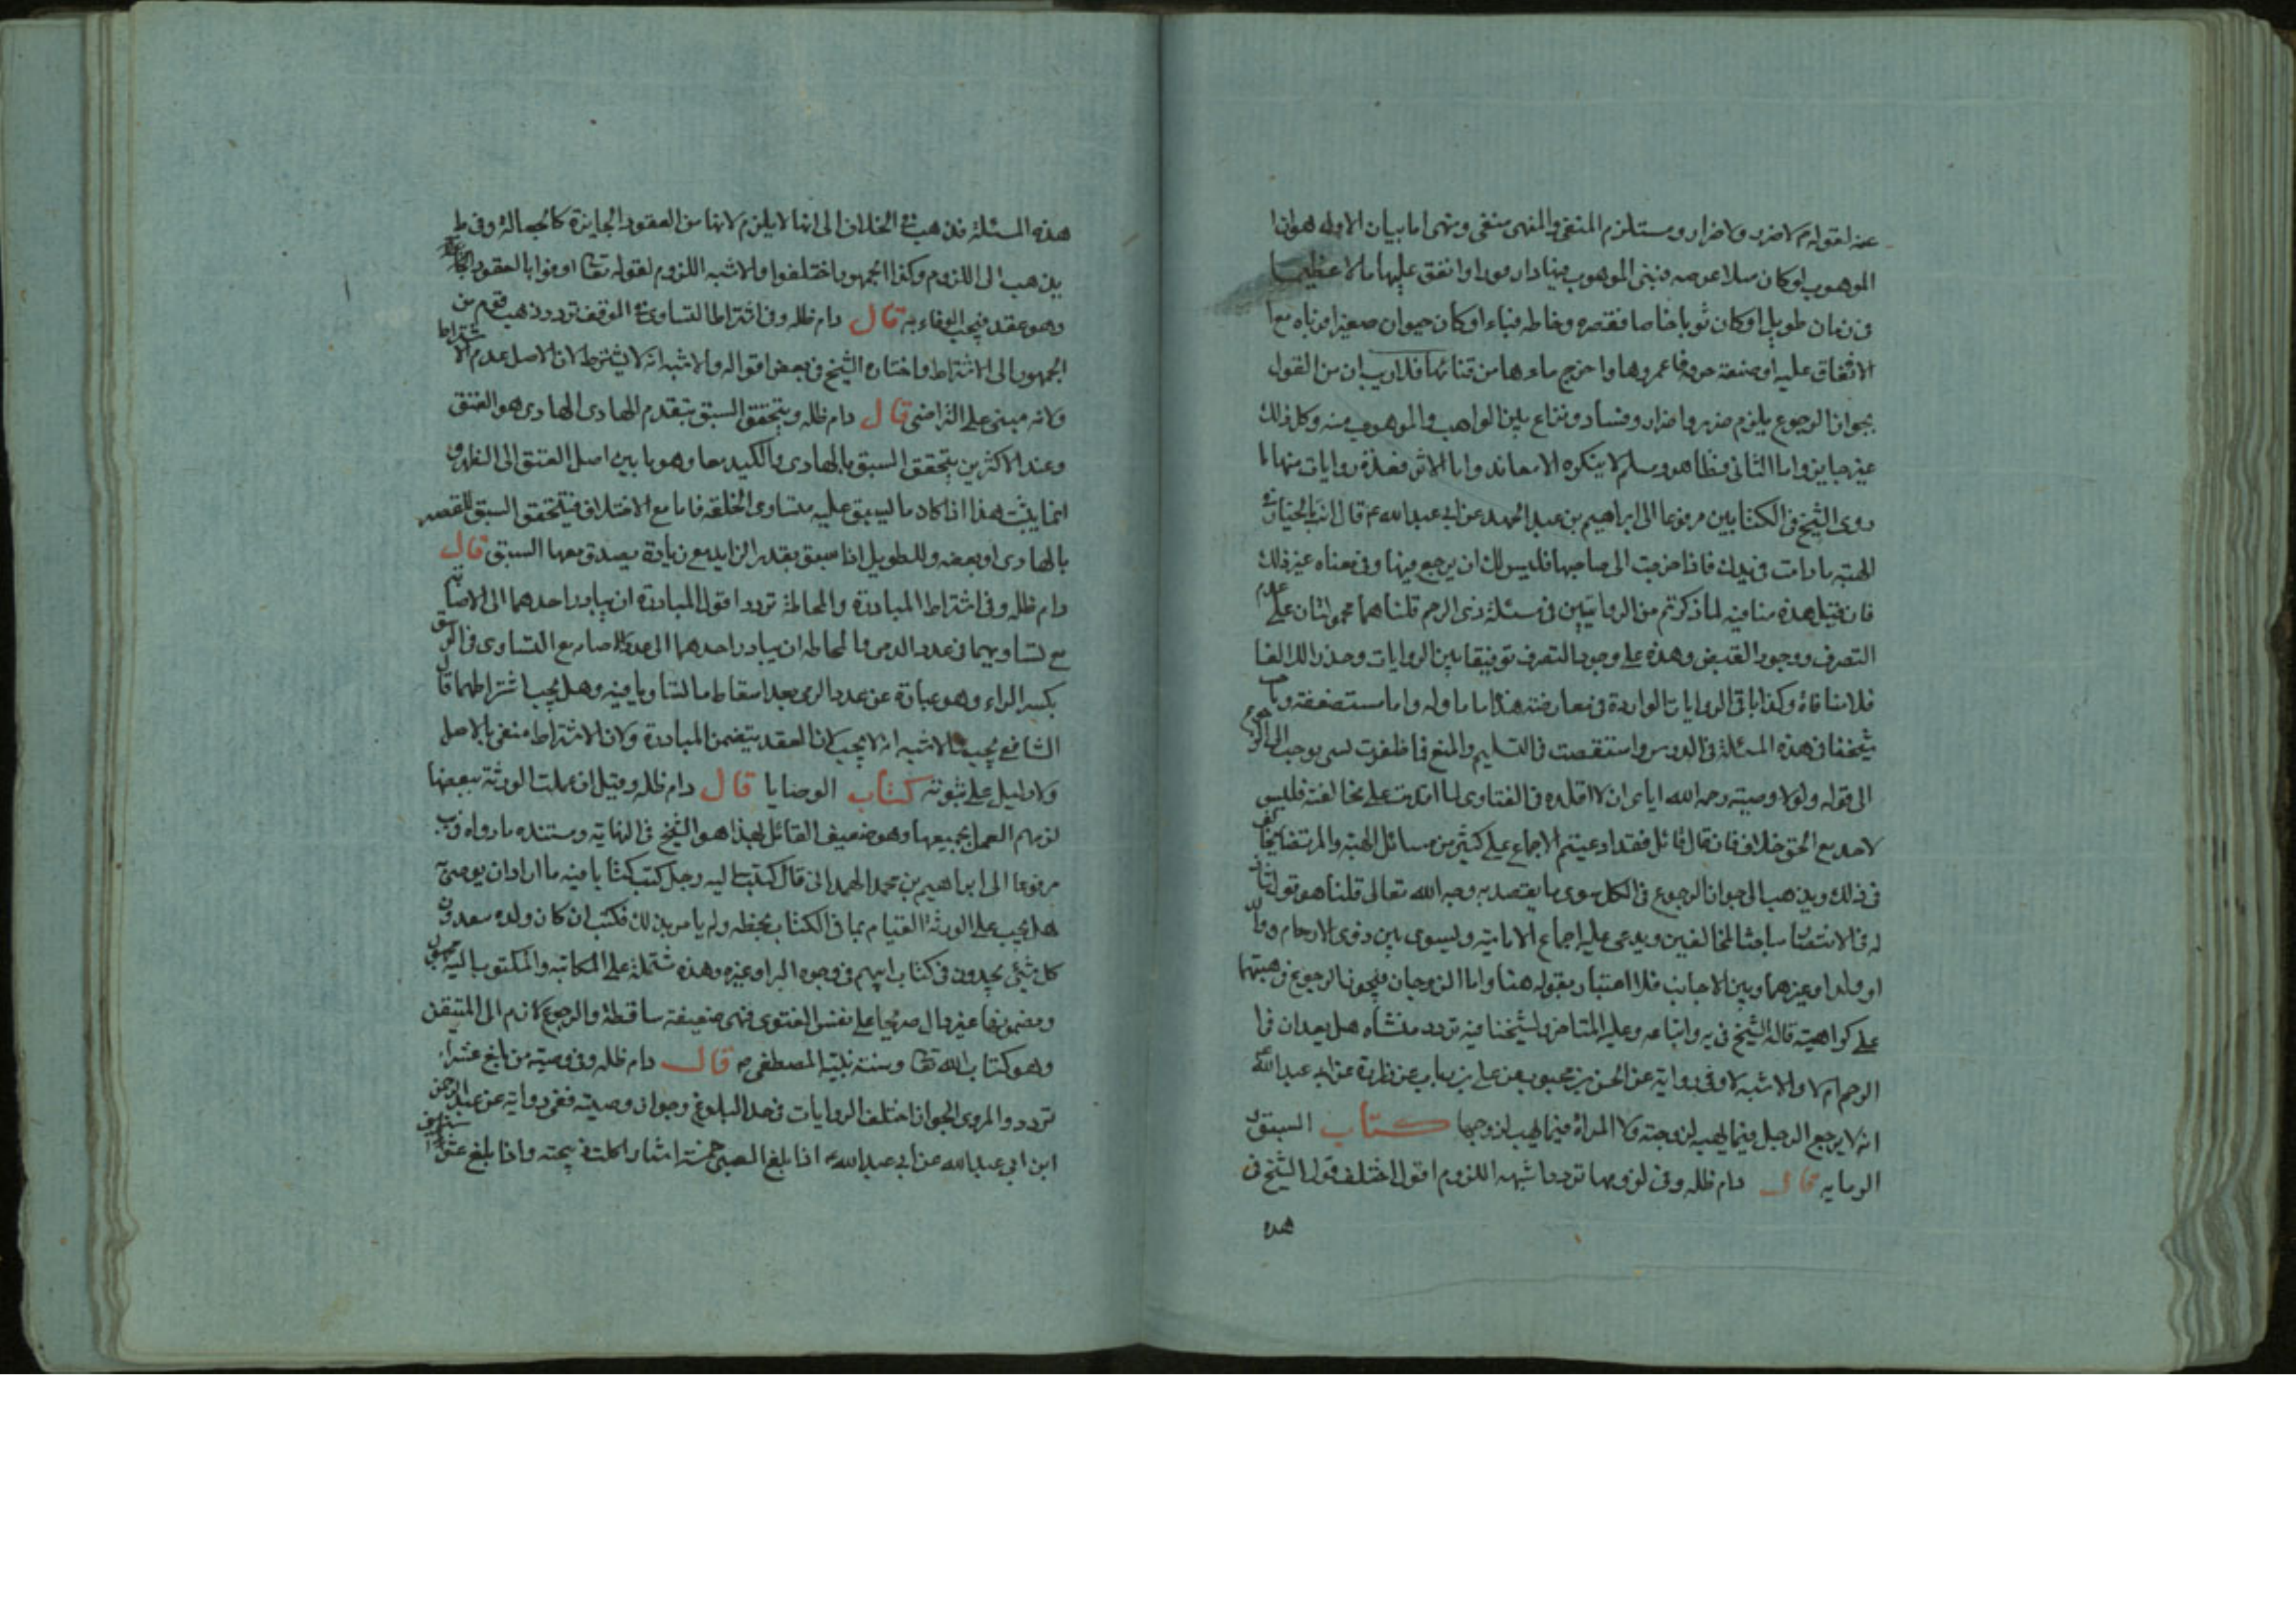 عنه لقوله م لا ضرر ولا ضرار ومستلزم المنفي والمنهى منفى ومنهى اما بيان الاوله هو اذا
الموهوب لو كان مثلا عرصه فبنى الموهوب فيها دار مورا وانفق عليها مالا عظيما
فى زمان طويل او كان ثوبا خاما فقصره وخاطه قباء او كان حيوان صغيرا فرباه مع
الانفاق عليه او ضيعة فعمروها واخرج ماءها من قناتها فلا ريب ان من القول
بجواز الرجوع يلزم ضرر واضرار وفساد ونزاع بين الواهب والموهوب منه وكل ذلك
غير جايز واما الثانى فظاهر ومسلم لا ينكره الا معاند واما الاثر فعدة روايات منها ما
روى الشيخ فى الكتابين مرفوعا الى ابراهيم بن عبد الحميد عن ابى عبد الله ع قال انت بالخيار فى
الهبة ما دامت فى يدك فاذا خرجت الى صاحبها فليس لك ان يرجع فيها وفى معناه غير ذلك
فان قيل هذه منافيه لما ذكرتم من الروايتين فى مسئلة ذى الرحم قلنا هما محمولتان على عدم
التصرف ووجود القبض وهذه على وجود التصرف توفيقا بين الروايات وحذرا
فلا منافاة وكذا باقى الروايات الواردة فى معارضة هذا اما ماوله واما مستضعفة
شيخنا فى هذه المسئلة فى الدرس واستقصت فى التسليم والمنع فما ظفرت بشى يوجب الرجوع
الى قوله ولولا وصيته رحمه الله اياى ان لا اقلده فى الفتاوى لما اقدمت على مخالفته فليس
لاحد مع الحق خلاف فان قال قائل فقد ادعيتم الاجماع على كثير من مسائل الهبة والمرتضى يخالف
فى ذلك ويذهب الى جواز الرجوع فى الكل سوى ما يقصد به وجه الله تعالى قلنا هو قول
له فى الانتصار مباحثا للمخالفين ويدعى عليه اجماع الامامية ويسوى بين ذوى الارحام
او ولدا وغيرهما وبين الاجانب فلا اعتبار بقوله هنا واما الزوجان فيجوز الرجوع فى هبتهما
على كراهية قاله الشيخ فى يه واتباعه وعليه المتاخر ولشيخنا فيه تردد منشاه هل يعدان
الرحم ام لا والاشبه لا وفى رواية عن الحسن بن محبوب عن على بن رياب عن زرارة عن ابى عبد الله ع
انه لا يرجع الرجل فيما يهبه لزوجته ولا المراة فيما يهب لزوجها كتاب السبق
الرمايه قال دام ظله وفى لزومها تردد اشبهه اللزوم اقول اختلف قول الشيخ فى
هذه
هذه المسئلة فذهب فى الخلاف الى انها لا يلزم لانها من العقود الجايزة كالجعالة وفى ط
يذهب الى اللزوم وكذا الجمهور اختلفوا والاشبه اللزوم لقوله تعا اوفوا بالعقود
وهو عقد فيجب الوفاء به قال دام ظله وفى اشتراط التساوى فى الموقف تردد ذهب قوم من
الجمهور الى الاشتراط واختاره الشيخ فى بعض اقواله والاشبه انه لا يشترط لان الاصل عدم الاشتراط
ولانه مبنى على التراضى قال دام ظله ويتحقق السبق بتقدم الهادى الهادى هو العنق
وعند الاكثرين يتحقق السبق بالهادى والكتيد معا وهو ما بين اصل العنق الى الظهر و
انما يثبت هذا اذا كاد ما ليسبق عليه متساوى الخلقه فاما مع الاختلاف فيتحقق السبق للقصير
بالهادى او بعضه وللطويل اذا سبق بقدر الزايد مع زيادة يصدق معها السبق قال
دام ظله وفى اشتراط المبادرة والمحاطة تردد اقول المبادرة ان يبادر احدهما الى الاصابة
مع تساويهما فى عدد الرمى والمحاطه ان يبادر احدهما الى مع التساوى فى الرشق
بكسر الراء وهو عبارة عن عدد الرمى بعد اسقاط ما تساويا فيه وهل يجب اشتراطهما قال
الشافع يجب والاشبه انه لا يجب لان العقد يتضمن المبادرة ولان الاشتراط منفى بالاصل
ولا دليل على ثبوته كتاب الوصايا قال دام ظله وقيل ان عملت الورثة ببعضها
لزمهم العمل بجميعها وهو ضعيف القائل بهذا هو الشيخ فى النهاية ومستنده ما رواه فى يب
مرفوعا الى ابراهيم بن محمد الهمدانى قال كتبت اليه رجل كتب كتابا فيه ما اراد ان يوصى
هل يجب على الورثة القيام بما فى الكتاب بخطه ولم يامر بذلك فكتب ان كان ولده
كل شئ يجدون فى كتاب ابيهم فى وجوه البر او غيره وهذه مشتملة على المكاتبة والمكتوب اليه مجهول
ومضمونها غير دال صريحا على نفس الفتوى فهى ضعيفة ساقطة والرجوع لازم الى المتيقن
وهو كتاب الله تعا وسنة نبيه المصطفى ص قال دام ظله وفى وصية من بلغ عشرا
تردد والمروى الجواز اختلف الروايات فى حد البلوغ وجواز وصيته ففى رواية عن عبد الرحمن
ابن ابى عبد الله عن ابى عبد الله ع اذا بلغ الصبى خمسة اشبار اكلت ذبيحته واذا بلغ عشر سنين